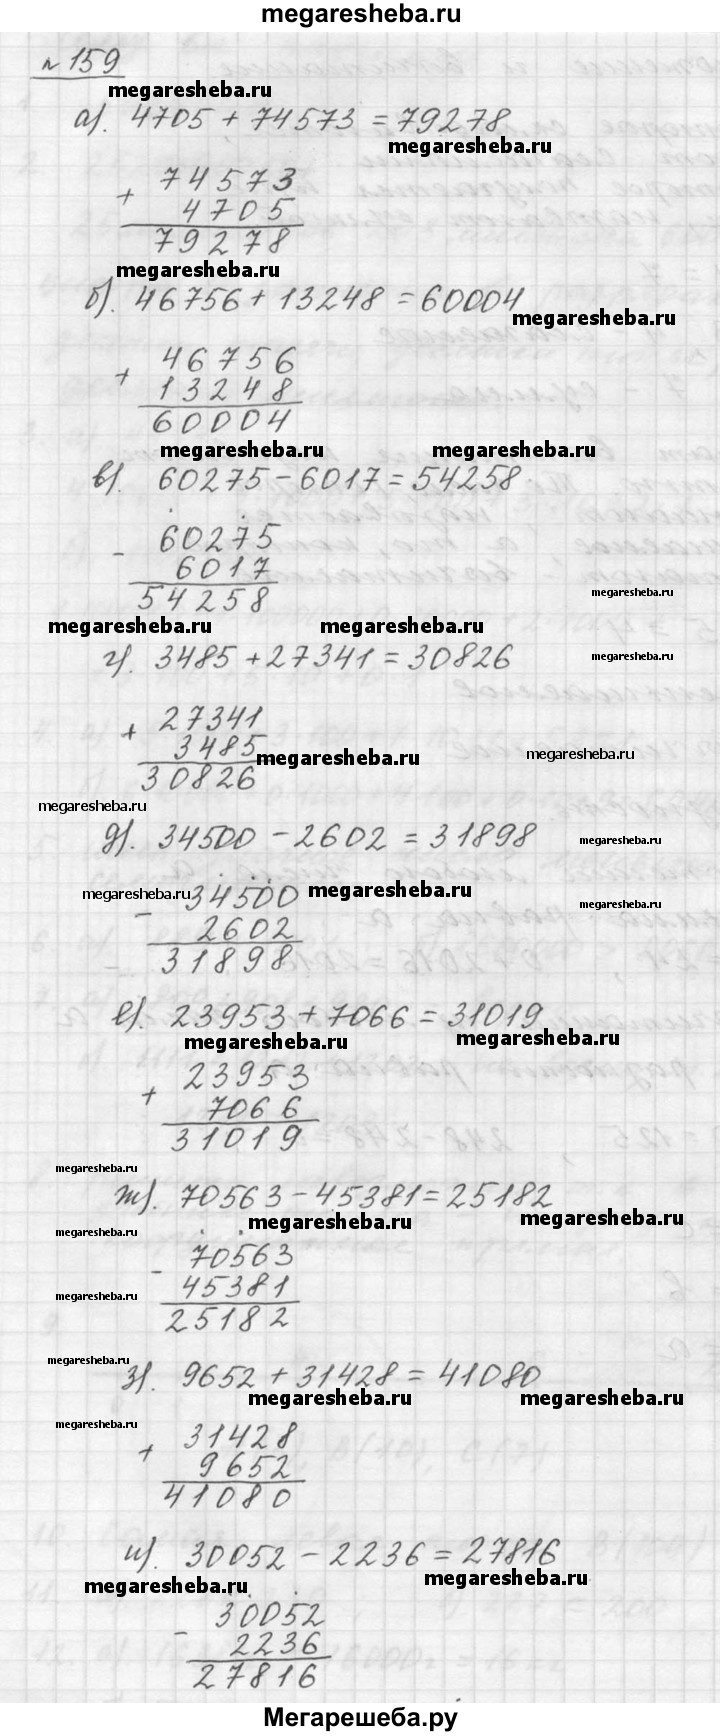 megaresheba.ru
№159
megaresheba.ru
а). 4705 + 74573 = 79278
megaresheba.ru
+ 74573
4705
79278
megaresheba.ru
б). 46756 + 13248 = 60004
megaresheba.ru
+ 46756
13248
60004
megaresheba.ru megaresheba.ru
в). 60275 - 6017 = 54258
- 60275
6017
54258
megaresheba.ru
megaresheba.ru megaresheba.ru
г). 3485 + 27341 = 30826
megaresheba.ru
+ 27341
3485
megaresheba.ru megaresheba.ru
30826
megaresheba.ru
д). 34500 - 2602 = 31898
megaresheba.ru
megaresheba.ru megaresheba.ru
- 34500
megaresheba.ru
2602
31898
е). 23953 + 7066 = 31019
megaresheba.ru megaresheba.ru
+ 23953
7066
31019
megaresheba.ru
ж). 70563 - 45381 = 25182
megaresheba.ru megaresheba.ru
megaresheba.ru
- 70563
45381
megaresheba.ru
25182
megaresheba.ru
з). 9652 + 31428 = 41080
megaresheba.ru megaresheba.ru
megaresheba.ru
+ 31428
9652
41080
и). 30052 - 2236 = 27816
megaresheba.ru megaresheba.ru
- 30052
2236
27816
Мегарешеба.ру